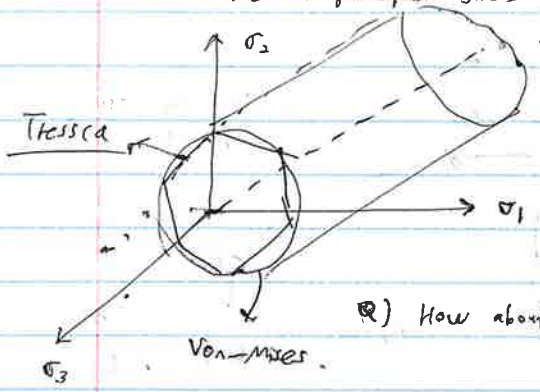 σ₂
Tressca
σ₁
Q) How abou
Von-Mises.
σ₃